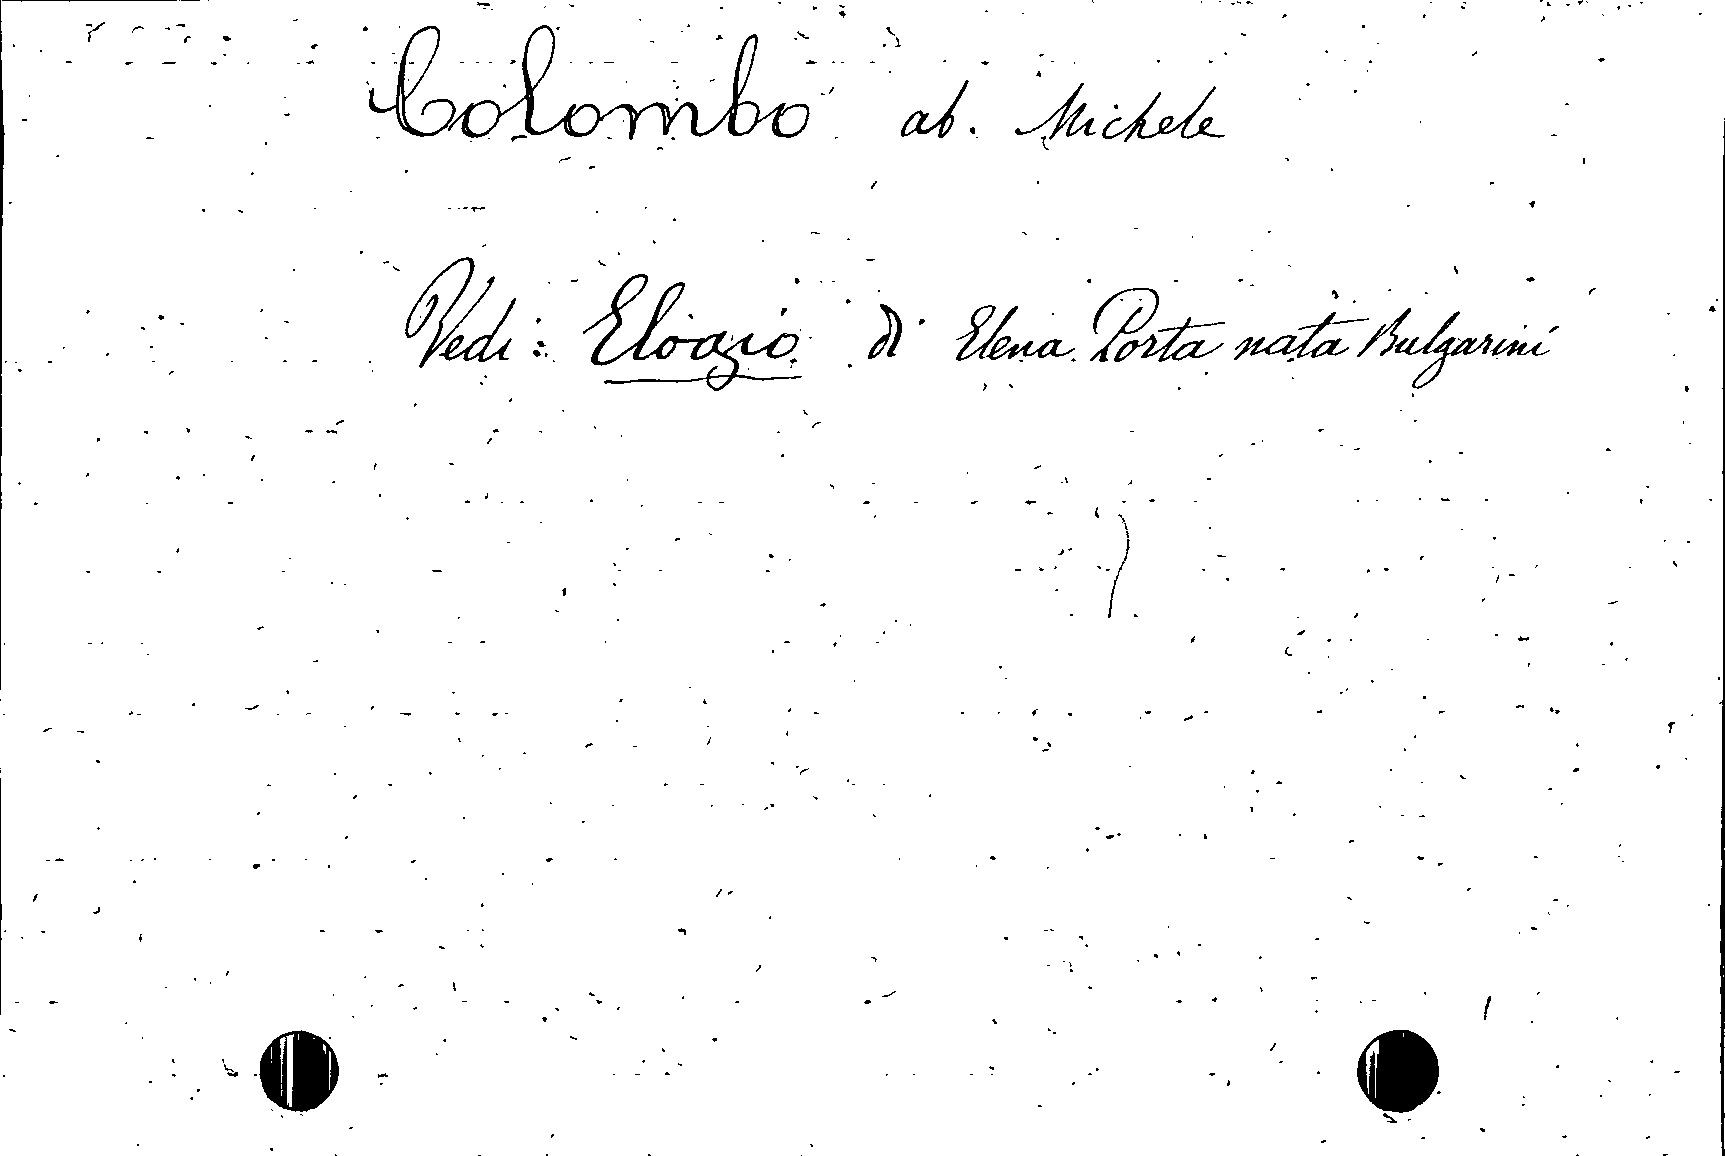 Colombo ab. Michele
Vedi: Elogio di Elena Porta nata Bulgarini